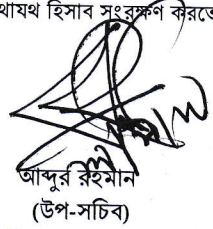 যথাযথ হিসাব সংরক্ষণ করতে
আব্দুর রহমান
(উপ-সচিব)